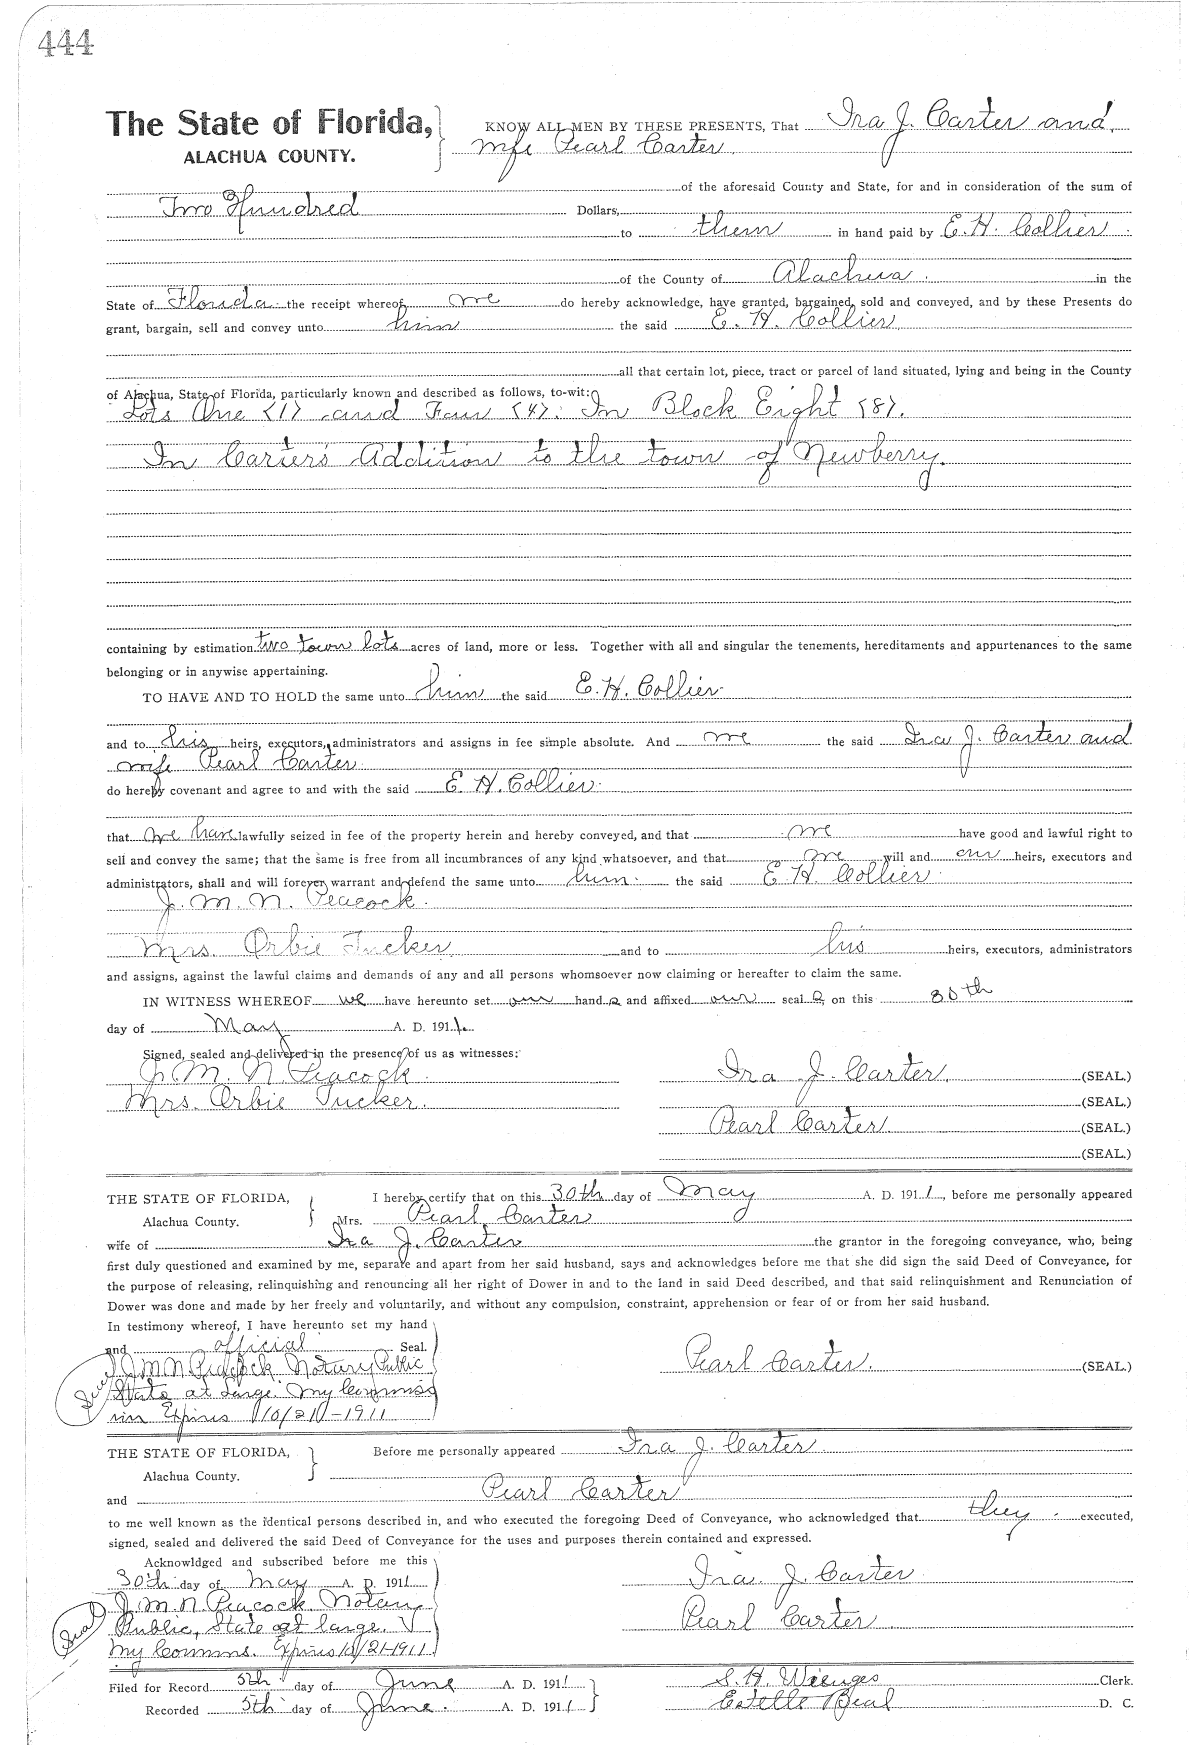 444
The State of Florida, KNOW ALL MEN BY THESE PRESENTS, That Ira J. Carter and
ALACHUA COUNTY. wife Pearl Carter
of the aforesaid County and State, for and in consideration of the sum of
Two Hundred Dollars,
to them in hand paid by E. H. Collier
of the County of Alachua in the
State of Florida the receipt whereof we do hereby acknowledge, have granted, bargained, sold and conveyed, and by these Presents do
grant, bargain, sell and convey unto him the said E. H. Collier
all that certain lot, piece, tract or parcel of land situated, lying and being in the County
of Alachua, State of Florida, particularly known and described as follows, to-wit:
Lots One (1) and Four (4). In Block Eight (8).
In Carter's Addition to the town of Newberry.
containing by estimation two town lots acres of land, more or less. Together with all and singular the tenements, hereditaments and appurtenances to the same
belonging or in anywise appertaining.
TO HAVE AND TO HOLD the same unto him the said E. H. Collier
and to his heirs, executors, administrators and assigns in fee simple absolute. And we the said Ira J. Carter and
wife Pearl Carter
do hereby covenant and agree to and with the said E. H. Collier
that we have lawfully seized in fee of the property herein and hereby conveyed, and that we have good and lawful right to
sell and convey the same; that the same is free from all incumbrances of any kind whatsoever, and that we will and our heirs, executors and
administrators, shall and will forever warrant and defend the same unto him the said E. H. Collier
J. M. N. Peacock.
Mrs. Orbie Tucker and to his heirs, executors, administrators
and assigns, against the lawful claims and demands of any and all persons whomsoever now claiming or hereafter to claim the same.
IN WITNESS WHEREOF we have hereunto set our hand s and affixed our seal s on this 30th
day of May A. D. 1911.
Signed, sealed and delivered in the presence of us as witnesses:
J. M. N. Peacock. Ira J. Carter. (SEAL.)
Mrs. Orbie Tucker. (SEAL.)
Pearl Carter (SEAL.)
(SEAL.)
THE STATE OF FLORIDA, I hereby certify that on this 30th day of May A. D. 1911, before me personally appeared
Alachua County. Mrs. Pearl Carter
wife of Ira J. Carter the grantor in the foregoing conveyance, who, being
first duly questioned and examined by me, separate and apart from her said husband, says and acknowledges before me that she did sign the said Deed of Conveyance, for
the purpose of releasing, relinquishing and renouncing all her right of Dower in and to the land in said Deed described, and that said relinquishment and Renunciation of
Dower was done and made by her freely and voluntarily, and without any compulsion, constraint, apprehension or fear of or from her said husband.
In testimony whereof, I have hereunto set my hand
and official Seal.
J. M. N. Peacock Notary Public Pearl Carter. (SEAL.)
Seal State at Large. My Commiss
ion Expires 10/21-1911
THE STATE OF FLORIDA, Before me personally appeared Ira J. Carter
Alachua County.
and Pearl Carter
to me well known as the identical persons described in, and who executed the foregoing Deed of Conveyance, who acknowledged that they executed,
signed, sealed and delivered the said Deed of Conveyance for the uses and purposes therein contained and expressed.
Acknowldged and subscribed before me this
30th day of May A. D. 1911 Ira J. Carter
J. M. N. Peacock Notary
Seal Public, State at large. Pearl Carter
My Comms. Expires 10/21-1911
Filed for Record 5th day of June A. D. 1911 S. H. Wienges Clerk.
Recorded 5th day of June. A. D. 1911 Estelle Beal D. C.